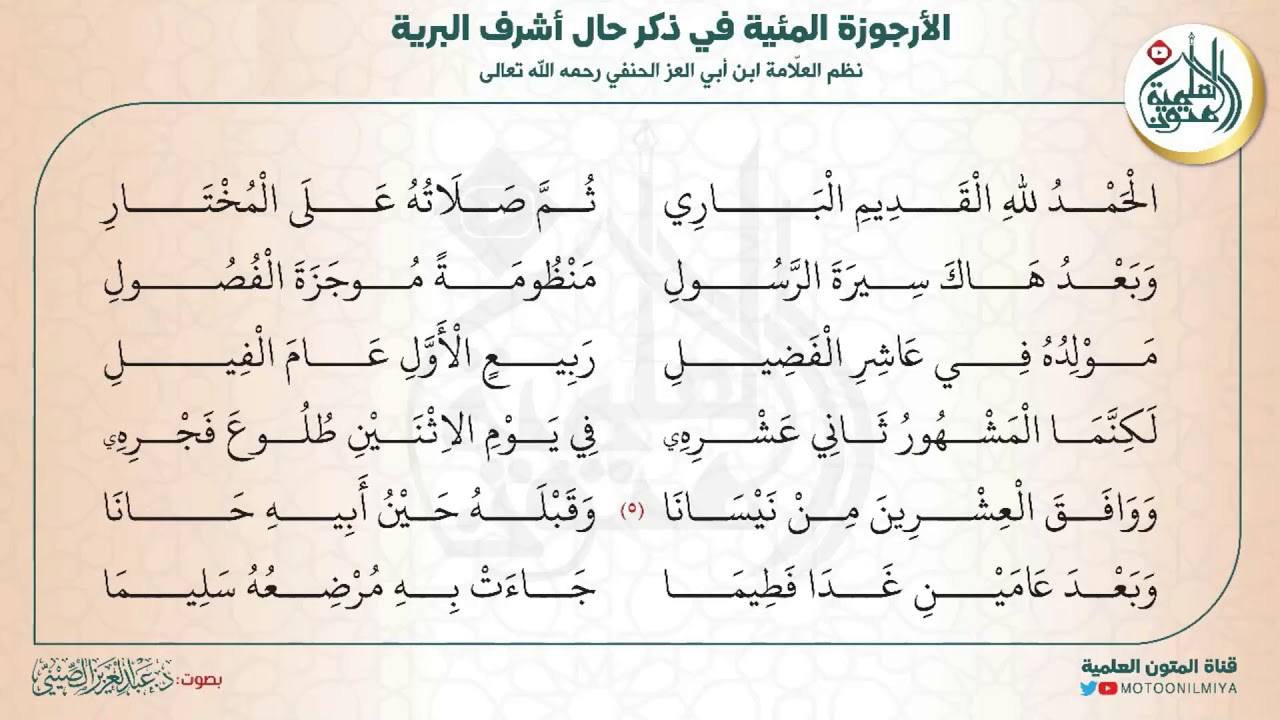 الأرجوزة المئية في ذكر حال أشرف البرية
نظم العلّامة ابن أبي العز الحنفي رحمه الله تعالى
العلمية
متون
الْحَمْدُ لِلهِ الْقَدِيمِ الْبَارِي ثُمَّ صَلَاتُهُ عَلَى الْمُخْتَارِ
وَبَعْدُ هَاكَ سِيرَةَ الرَّسُولِ مَنْظُومَةً مُوجَزَةَ الْفُصُولِ
مَوْلِدُهُ فِي عَاشِرِ الْفَضِيلِ رَبِيعٍ الْأَوَّلِ عَامَ الْفِيلِ
لَكِنَّمَا الْمَشْهُورُ ثَانِي عَشْرِهِي فِي يَوْمِ الاِثْنَيْنِ طُلُوعَ فَجْرِهِي
وَوَافَقَ الْعِشْرِينَ مِنْ نَيْسَانَا (٥) وَقَبْلَهُ حَيْنُ أَبِيهِ حَانَا
وَبَعْدَ عَامَيْنِ غَدَا فَطِيمَا جَاءَتْ بِهِ مُرْضِعُهُ سَلِيمَا
قناة المتون العلمية
MOTOONILMIYA
بصوت: د. عبدالعزيز الصيني